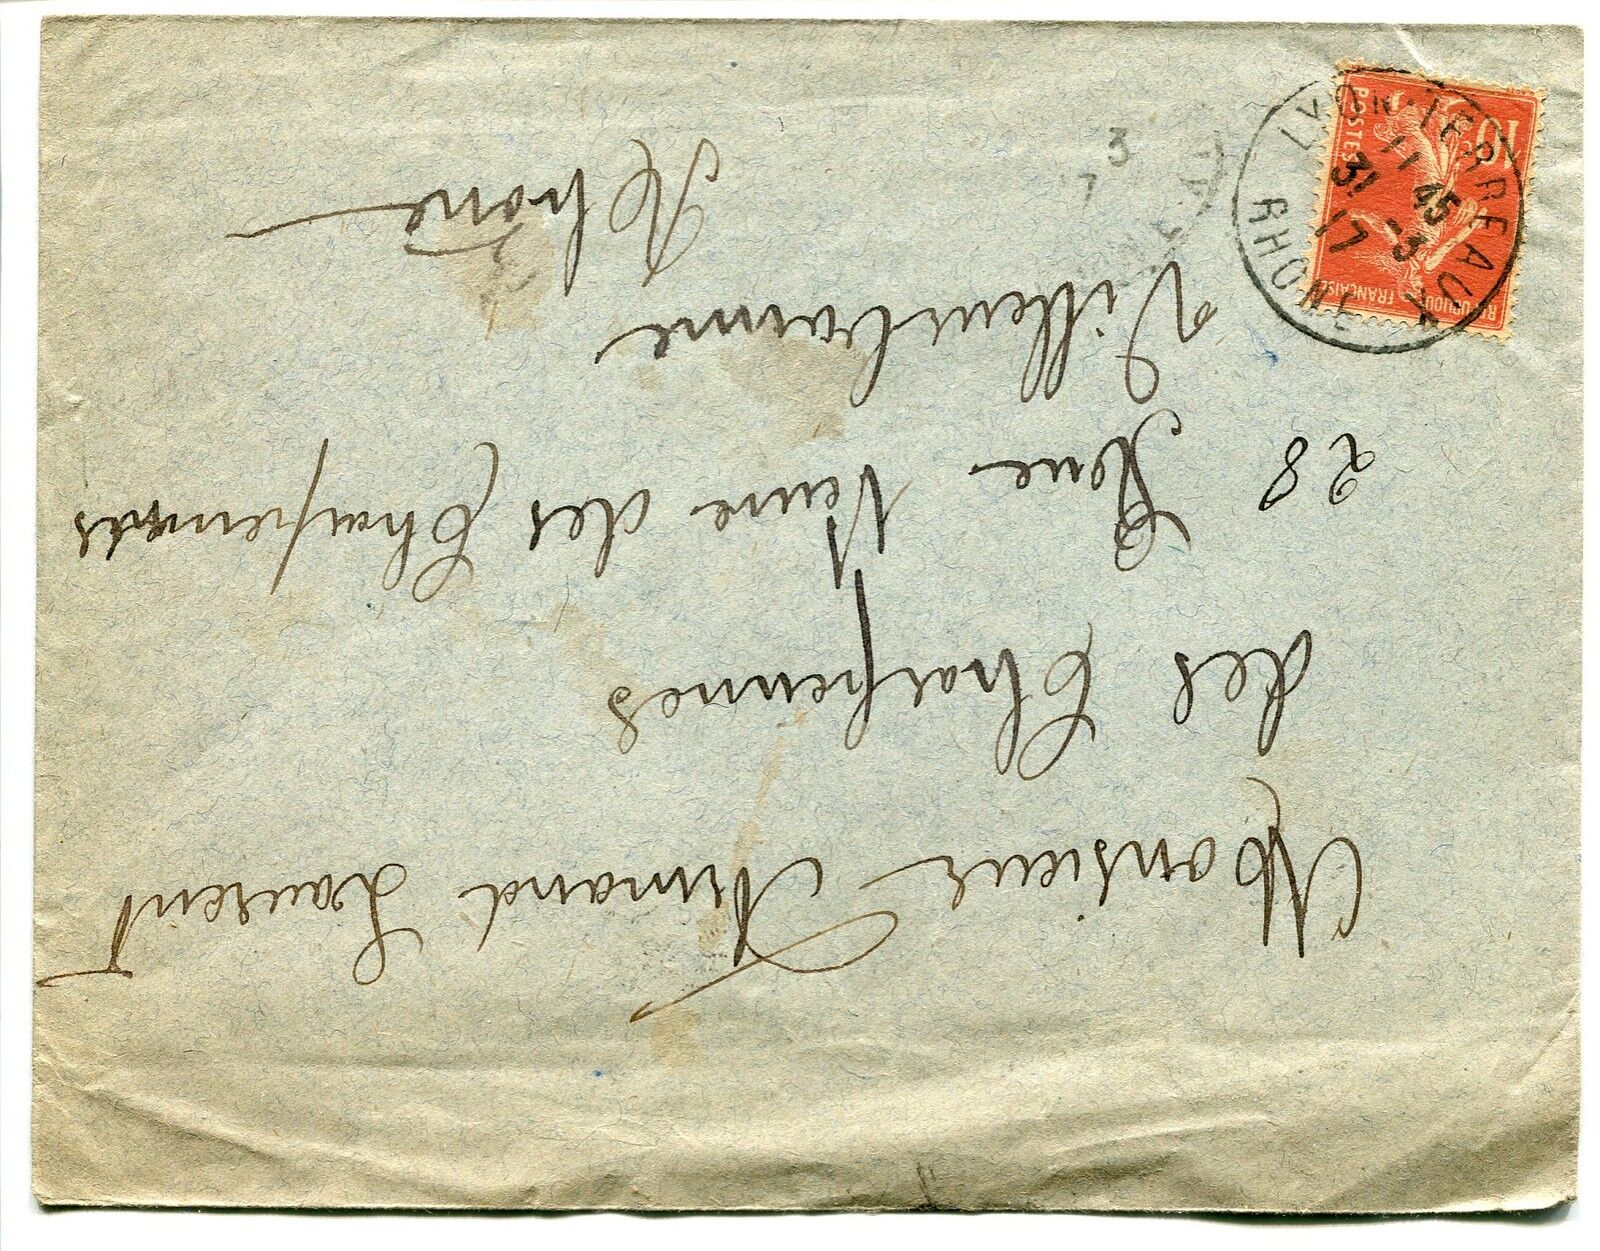 Monsieur Armand Laurent
des Charpennes
28 Rue Neuve des Charpennes
Villeurbanne
Rhône
LYON-TERREAUX
11 45
31 -3
17
RHONE
10c
POSTES
REPUBLIQUE
FRANÇAISE
3
7